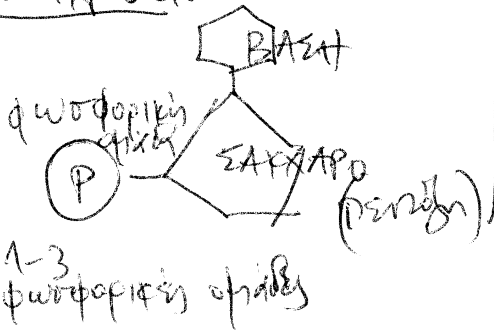 ΒΑΣΗ
φωσφορική
P
ΣΑΚΧΑΡΟ
(πεντόζη)
1-3
φωσφορικές ομάδες